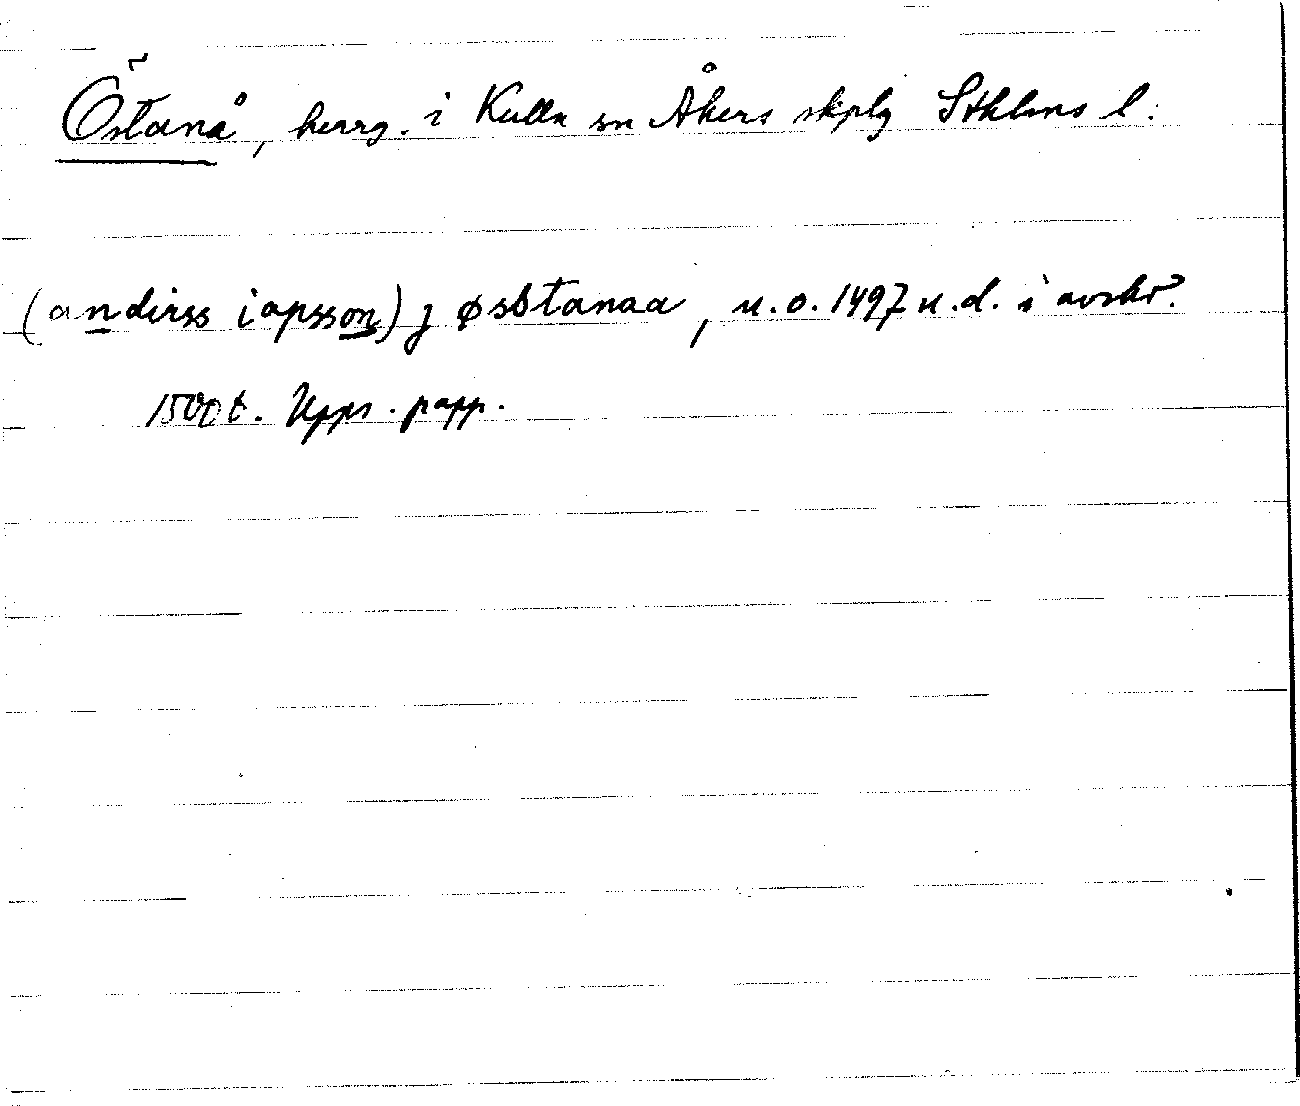 Östanå, herrg. i Kulla sn Åkers skplg Sthlms l:
(andirss iapsson) j østanaa, u.o. 1497 u.d. i avskr.
1500t. Upps. papp.